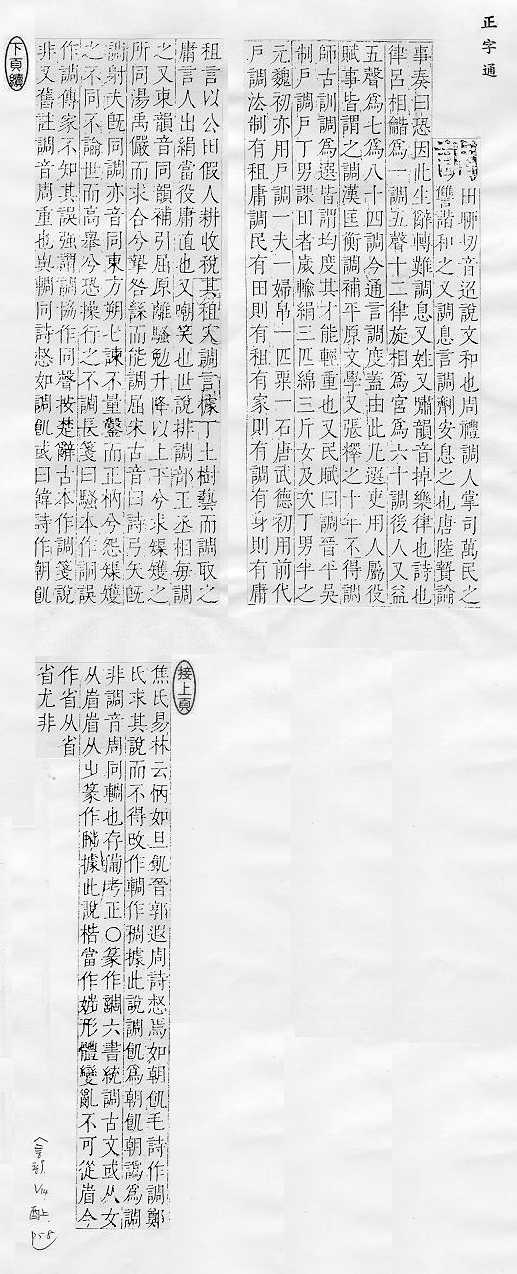 正字通
調
田聊切音迢說文和也周禮調人掌司萬民之
讐諧和之又調息言調劑安息之也唐陸贄論
事奏曰恐因此生辭轉難調息又姓又嘯韻音掉樂律也詩也
律呂相爲一調五聲十二律旋相爲宮爲六十調後人又益
五聲爲七爲八十四調今通言調度蓋由此凡選吏用人屬役
賦事皆謂之調漢匡衡調補平原文學又張釋之十年不得調
師古訓調爲遠皆謂均度其才能輕重也又民賦曰調晉平吳
制戸調戸丁男課田者歲輸絹三匹綿三斤女及次丁男半之
元魏初亦用戸調一夫一婦帛一匹粟一石唐武德初用前代
戸調法制有租庸調民有田則有租有家則有調有身則有庸
租言以公田假人耕收稅其租調言據丁土樹藝而調取之
庸言人出絹當役庸直也又嘲笑也世說排調部王丞相每調
之又東韻音同韻補引屈原離騷勉升降以上下兮求榘矱之
所同湯禹儼而求合兮摯咎繇而能調屈宋古音曰詩弓矢旣
調射夫旣同調亦音同東方朔七諫不量鑿而正枘兮恐榘矱
之不同不論世而高舉兮恐操行之不調長箋曰騷本作詷誤
作調傳家不知其誤強謂調協作同聲按楚辭古本作調箋說
非又舊註調音周重也與輖同詩惄如調飢或曰韓詩作朝飢
下頁續
接上頁
焦氏易林云如旦飢晉郭遐周詩惄焉如朝飢毛詩作調鄭
氏求其說而不得改作輖作稠據此說調飢爲朝飢朝譌爲調
非調音周同輖也存備考正○篆作調六書統調古文或从女
从㫺㫺从屮篆作據此說楷當作形體變亂不可從㫺今
作省从省
省尤非
言部
V14
酉上
p58